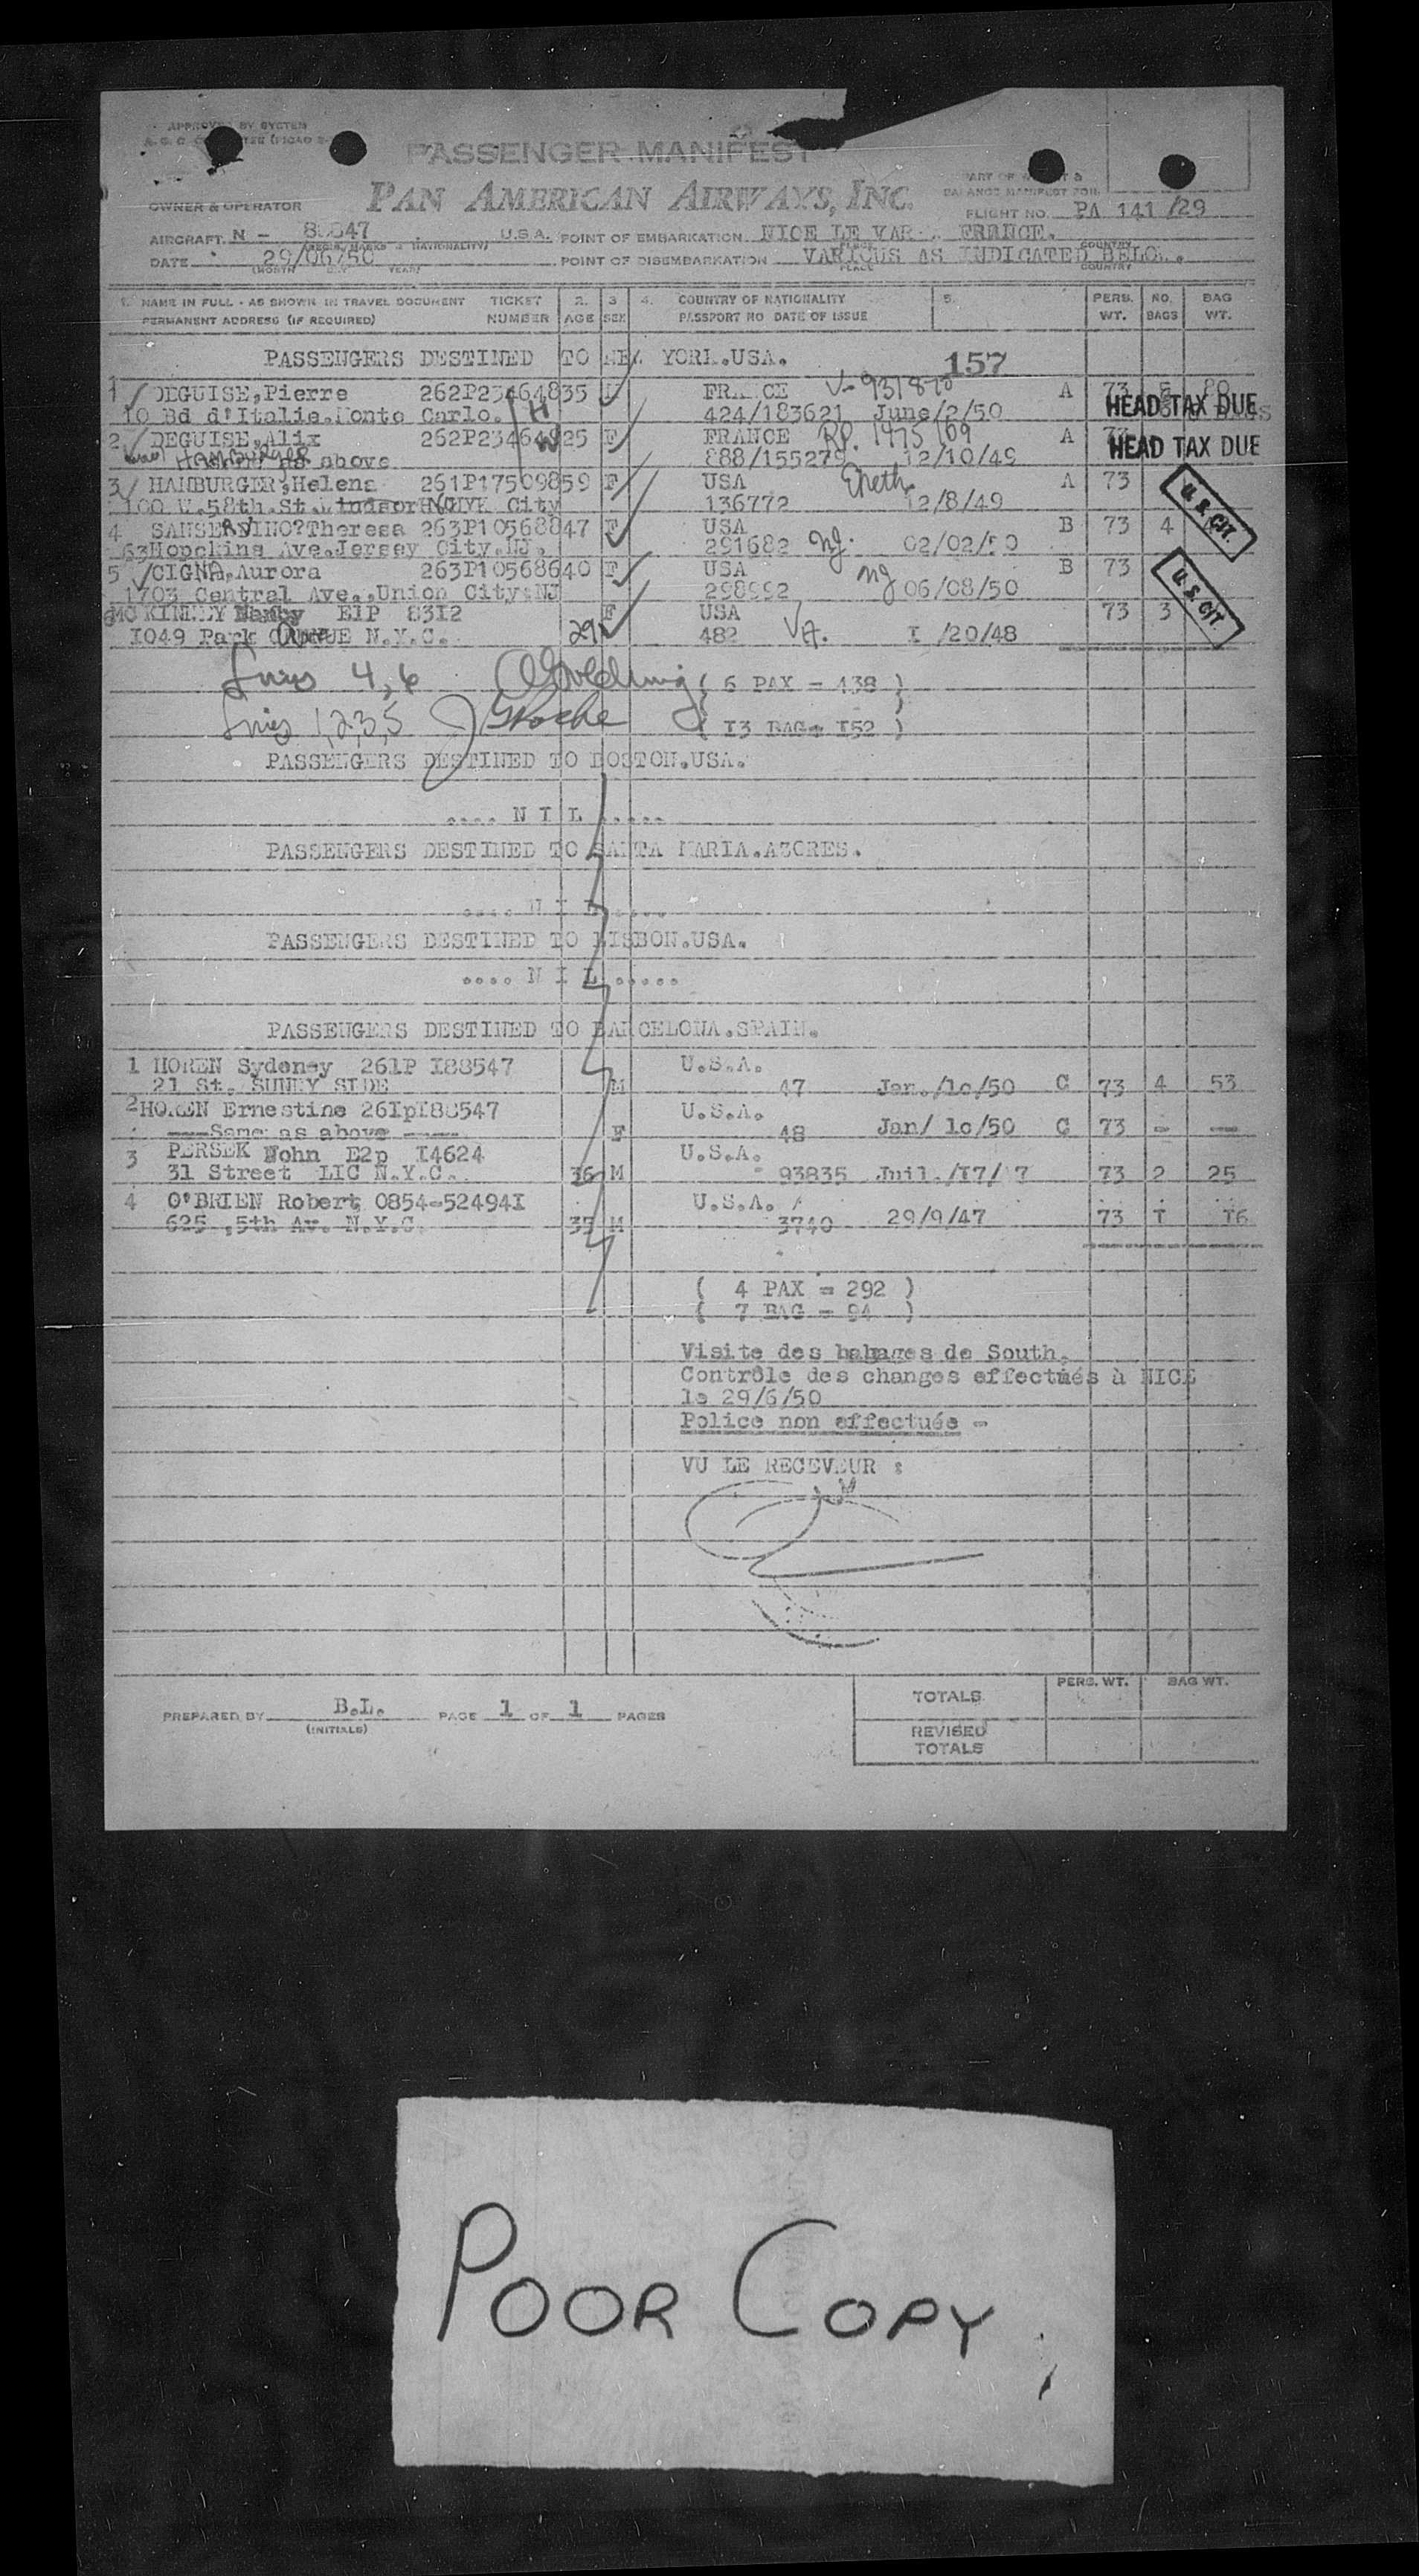 APPROVED BY SYSTEM
PASSENGER MANIFEST
PAN AMERICAN AIRWAYS, INC.
PART OF WEIGHT &
BALANCE MANIFEST FOR
OWNER & OPERATOR
FLIGHT NO. PA 141/29
AIRCRAFT. N - 80847 U.S.A. POINT OF EMBARKATION NICE LE VAR FRANCE.
(REGIS. MARKS & NATIONALITY) PLACE COUNTRY
DATE 29/06/50 POINT OF DISEMBARKATION VARIOUS AS INDICATED BELOW.
(MONTH DAY YEAR) PLACE COUNTRY
1. NAME IN FULL - AS SHOWN IN TRAVEL DOCUMENT TICKET 2. 3 4. COUNTRY OF NATIONALITY 5. PERS. NO. BAG
PERMANENT ADDRESS (IF REQUIRED) NUMBER AGE SEX PASSPORT NO DATE OF ISSUE WT. BAGS WT.
PASSENGERS DESTINED TO NEW YORK.USA. 157
1 DEGUISE,Pierre 262P23464835 FRANCE V-931870 A 73 5 80
10 Bd d'Italie.Monte Carlo. H 424/183621 June/2/50 HEAD TAX DUE
2 DEGUISE,Alix 262P23464 W 25 F FRANCE RP. 1475169 A 73
nee Hamburger as above 888/155279 12/10/49 HEAD TAX DUE
3 HAMBURGER,Helena 261P17509859 F USA A 73
100 W.58th.St. NYK City 136772 12/8/49 U.S. CIT.
4 SANSERVINO?Theresa 263P10568847 F USA B 73 4
63Hopckins Ave.Jersey City.NJ. 291682 NJ. 02/02/50
5 CIGNA,Aurora 263P10568640 F USA B 73
1703 Central Ave.,Union City:NJ 298992 NJ 06/08/50 U.S. CIT.
6 MC KINLEY Nancy E1P 83I2 F USA 73 3
I049 Park N.Y.C. 29 482 I /20/48
Lines 4,6 ( 6 PAX = 438 )
Lines 1,2,3,5 ( I3 BAG= I52 )
PASSENGERS DESTINED TO BOSTON.USA.
.... N I L .....
PASSENGERS DESTINED TO SANTA MARIA.AZORES.
.... N I L .....
PASSENGERS DESTINED TO LISBON.USA.
.... N I L .....
PASSENGERS DESTINED TO BARCELONA.SPAIN.
1 HOREN Sydeney 261P I88547 U.S.A.
21 St. SUNNY SIDE M 47 Jan./10/50 C 73 4 53
2 HOREN Ernestine 26IpI88547 U.S.A.
---Same as above ---- F 48 Jan/ 10/50 C 73 - --
3 PERSEK John E2p I4624 U.S.A.
31 Street LIC N.Y.C. 36 M 93835 Juil./I7/ 7 73 2 25
4 O'BRIEN Robert 0854-52494I U.S.A.
625 ,5th Av. N.Y.C. 35 M 3740 29/9/47 73 I I6
( 4 PAX = 292 )
( 7 BAG = 94 )
Visite des bagages de South.
Contrôle des changes effectués à NICE
le 29/6/50
Police non effectuée -
VU LE RECEVEUR :
PREPARED BY B.L. PAGE 1 OF 1 PAGES
(INITIALS)
PERS. WT. BAG WT.
TOTALS
REVISED
TOTALS
POOR COPY